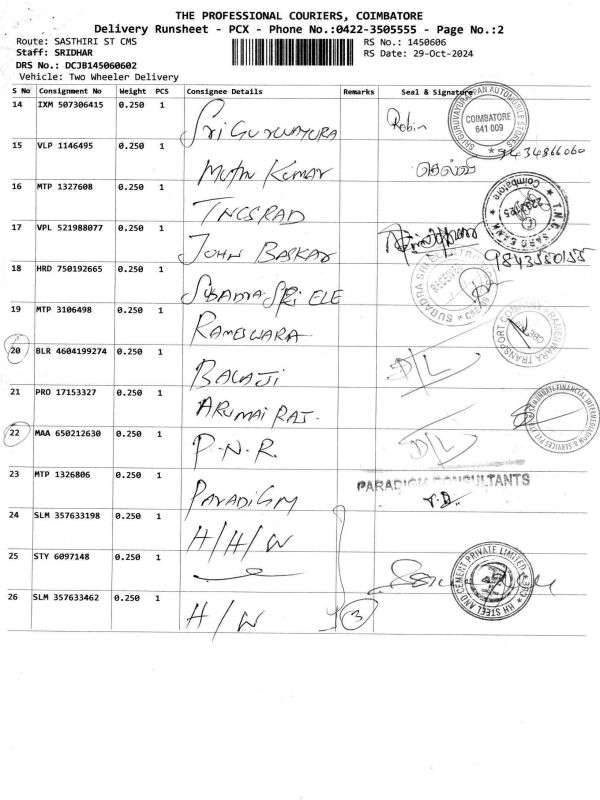 THE PROFESSIONAL COURIERS, COIMBATORE
Delivery Runsheet - PCX - Phone No.:0422-3505555 - Page No.:2
Route: SASTHIRI ST CMS
RS No.: 1450606
Staff: SRIDHAR
RS Date: 29-Oct-2024
DRS No.: DCJB145060602
Vehicle: Two Wheeler Delivery
S No Consignment No Weight PCS Consignee Details Remarks Seal & Signature
14 IXM 507306415 0.250 1 Sri Guruvayura Robin
COIMBATORE
641 009
15 VLP 1146495 0.250 1 Muthu Kumar செல்வி 9434866060
16 MTP 1327608 0.250 1 TNGSRAD
Coimbatore
17 VPL 521988077 0.250 1 JOHN BASKAR
9843580155
18 HRD 750192665 0.250 1 SUBADRA SRI ELE
RECEIVED
19 MTP 3106498 0.250 1 RAMESWARA
20 BLR 4604199274 0.250 1 BALAJI D/L
21 PRO 17153327 0.250 1 ARUMAI RAJ.
22 MAA 650212630 0.250 1 P.N.R. D/L
23 MTP 1326806 0.250 1 PARADIGM
PARADIGM CONSULTANTS
24 SLM 357633198 0.250 1 H/H/W
25 STY 6097148 0.250 1
HH STEEL AND CEMENT PRIVATE LIMITED CBE
26 SLM 357633462 0.250 1 H/W 3